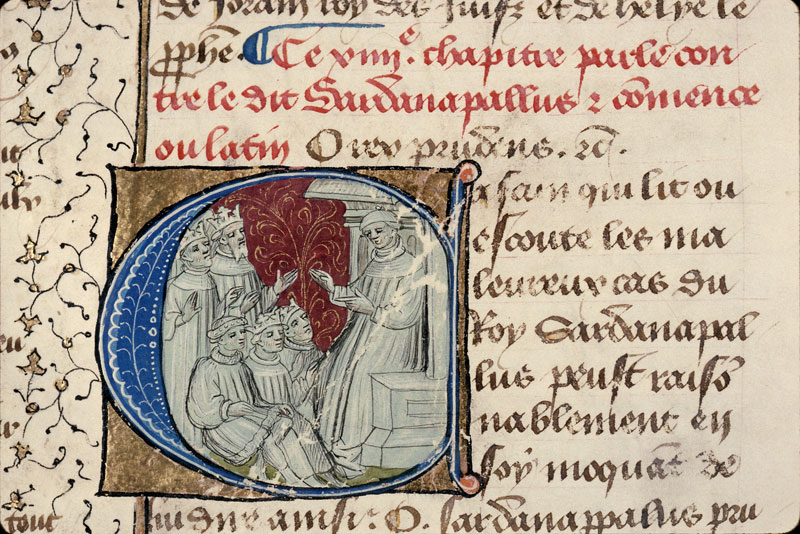 de Joram roy des Juifz et de helye le
pphe. Ce xiiii.e chapitre parle con
tre le dit Sardanapallus ⁊ cōmence
ou latin O rex prudens. ⁊c̄.
ascun qui lit ou
escoute les ma
leureux cas du
Roy Sardanapal
lus peust raisō
nablement en
soy moquāt de
ainsi: O. sardanappallus pru
tout